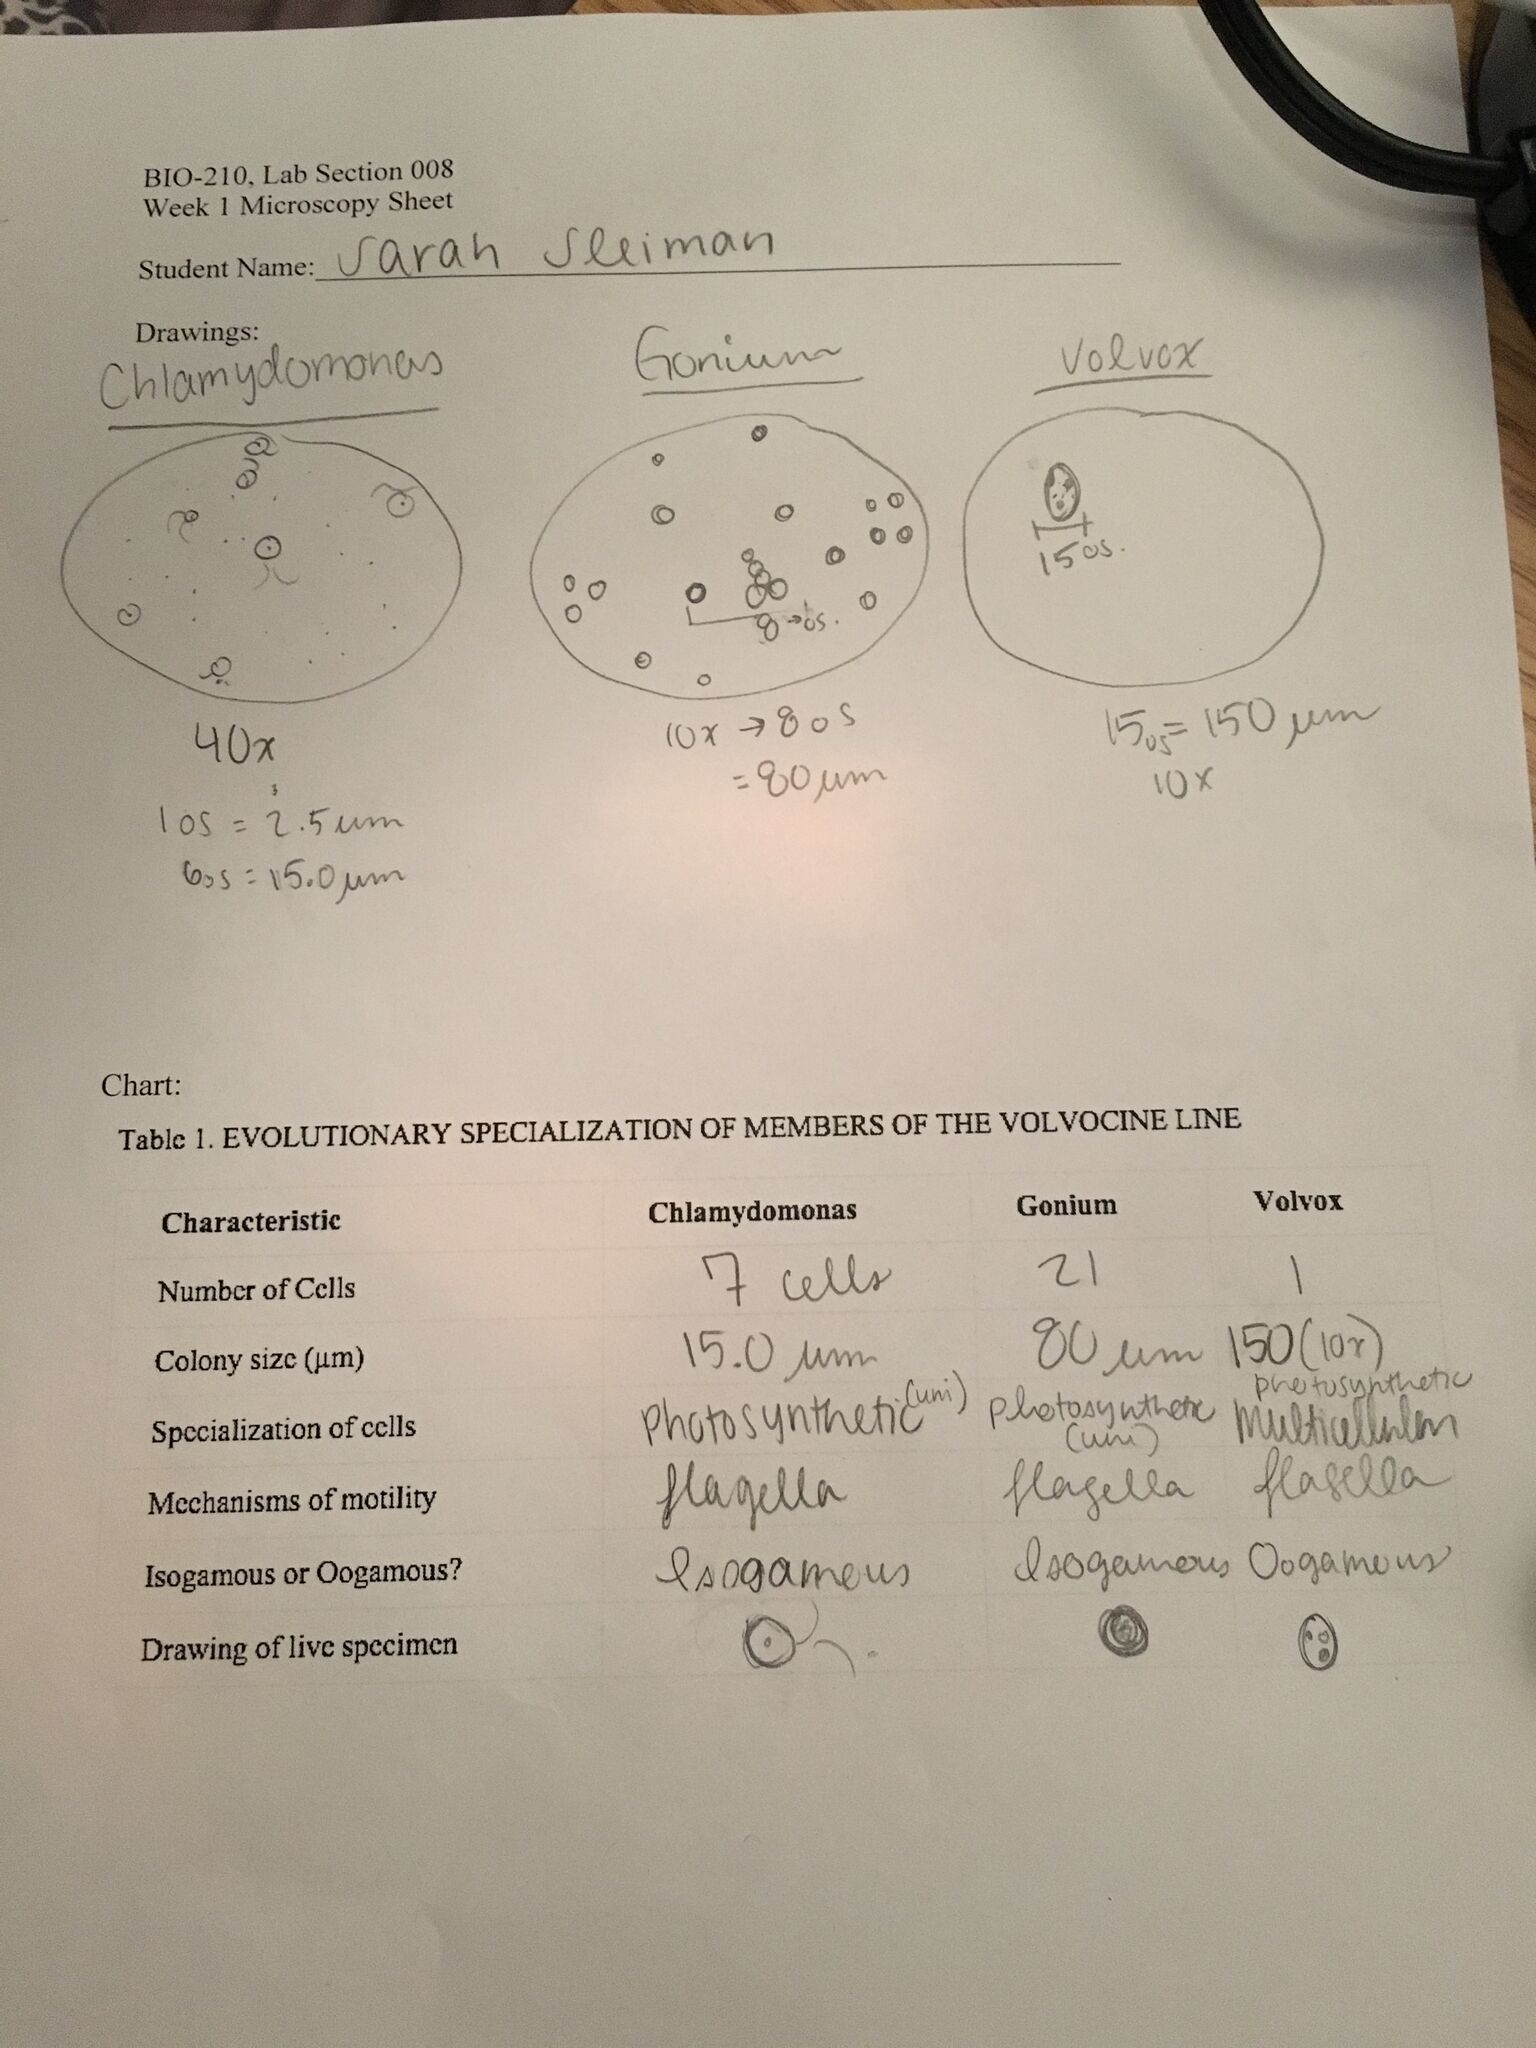 BIO-210, Lab Section 008
Week 1 Microscopy Sheet
Student Name: Sarah Sleiman
Drawings:
Chlamydomonas Gonium Volvox
15 os.
8 → os.
40x 10x → 8 os 15os = 150 μm
= 80 μm 10x
1 os = 2.5 μm
6os = 15.0 μm
Chart:
Table 1. EVOLUTIONARY SPECIALIZATION OF MEMBERS OF THE VOLVOCINE LINE
Characteristic Chlamydomonas Gonium Volvox
Number of Cells 7 cells 21 1
Colony size (μm) 15.0 μm 80 μm 150 (10x)
Specialization of cells Photosynthetic (uni) photosynthetic (uni) photosynthetic Multicellular
Mechanisms of motility flagella flagella flagella
Isogamous or Oogamous? Isogamous Isogamous Oogamous
Drawing of live specimen